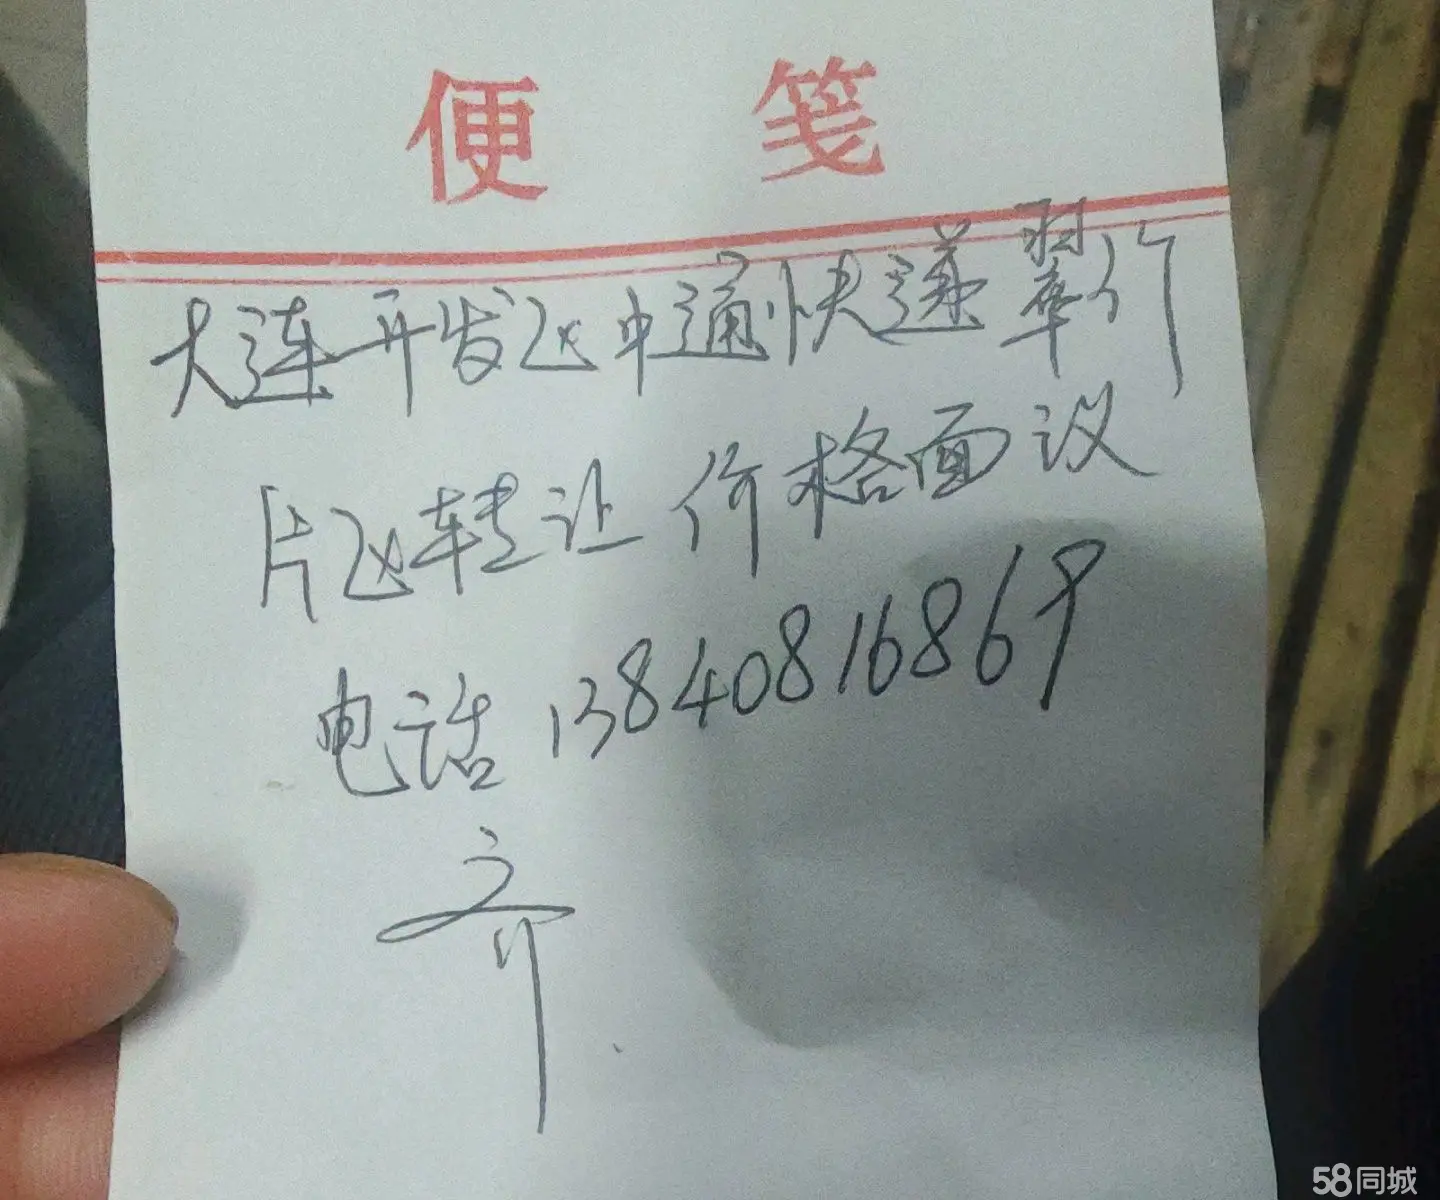 便笺
大连开发区中通快递翠竹
片区转让 价格面议
电话 13840816869
齐
58同城